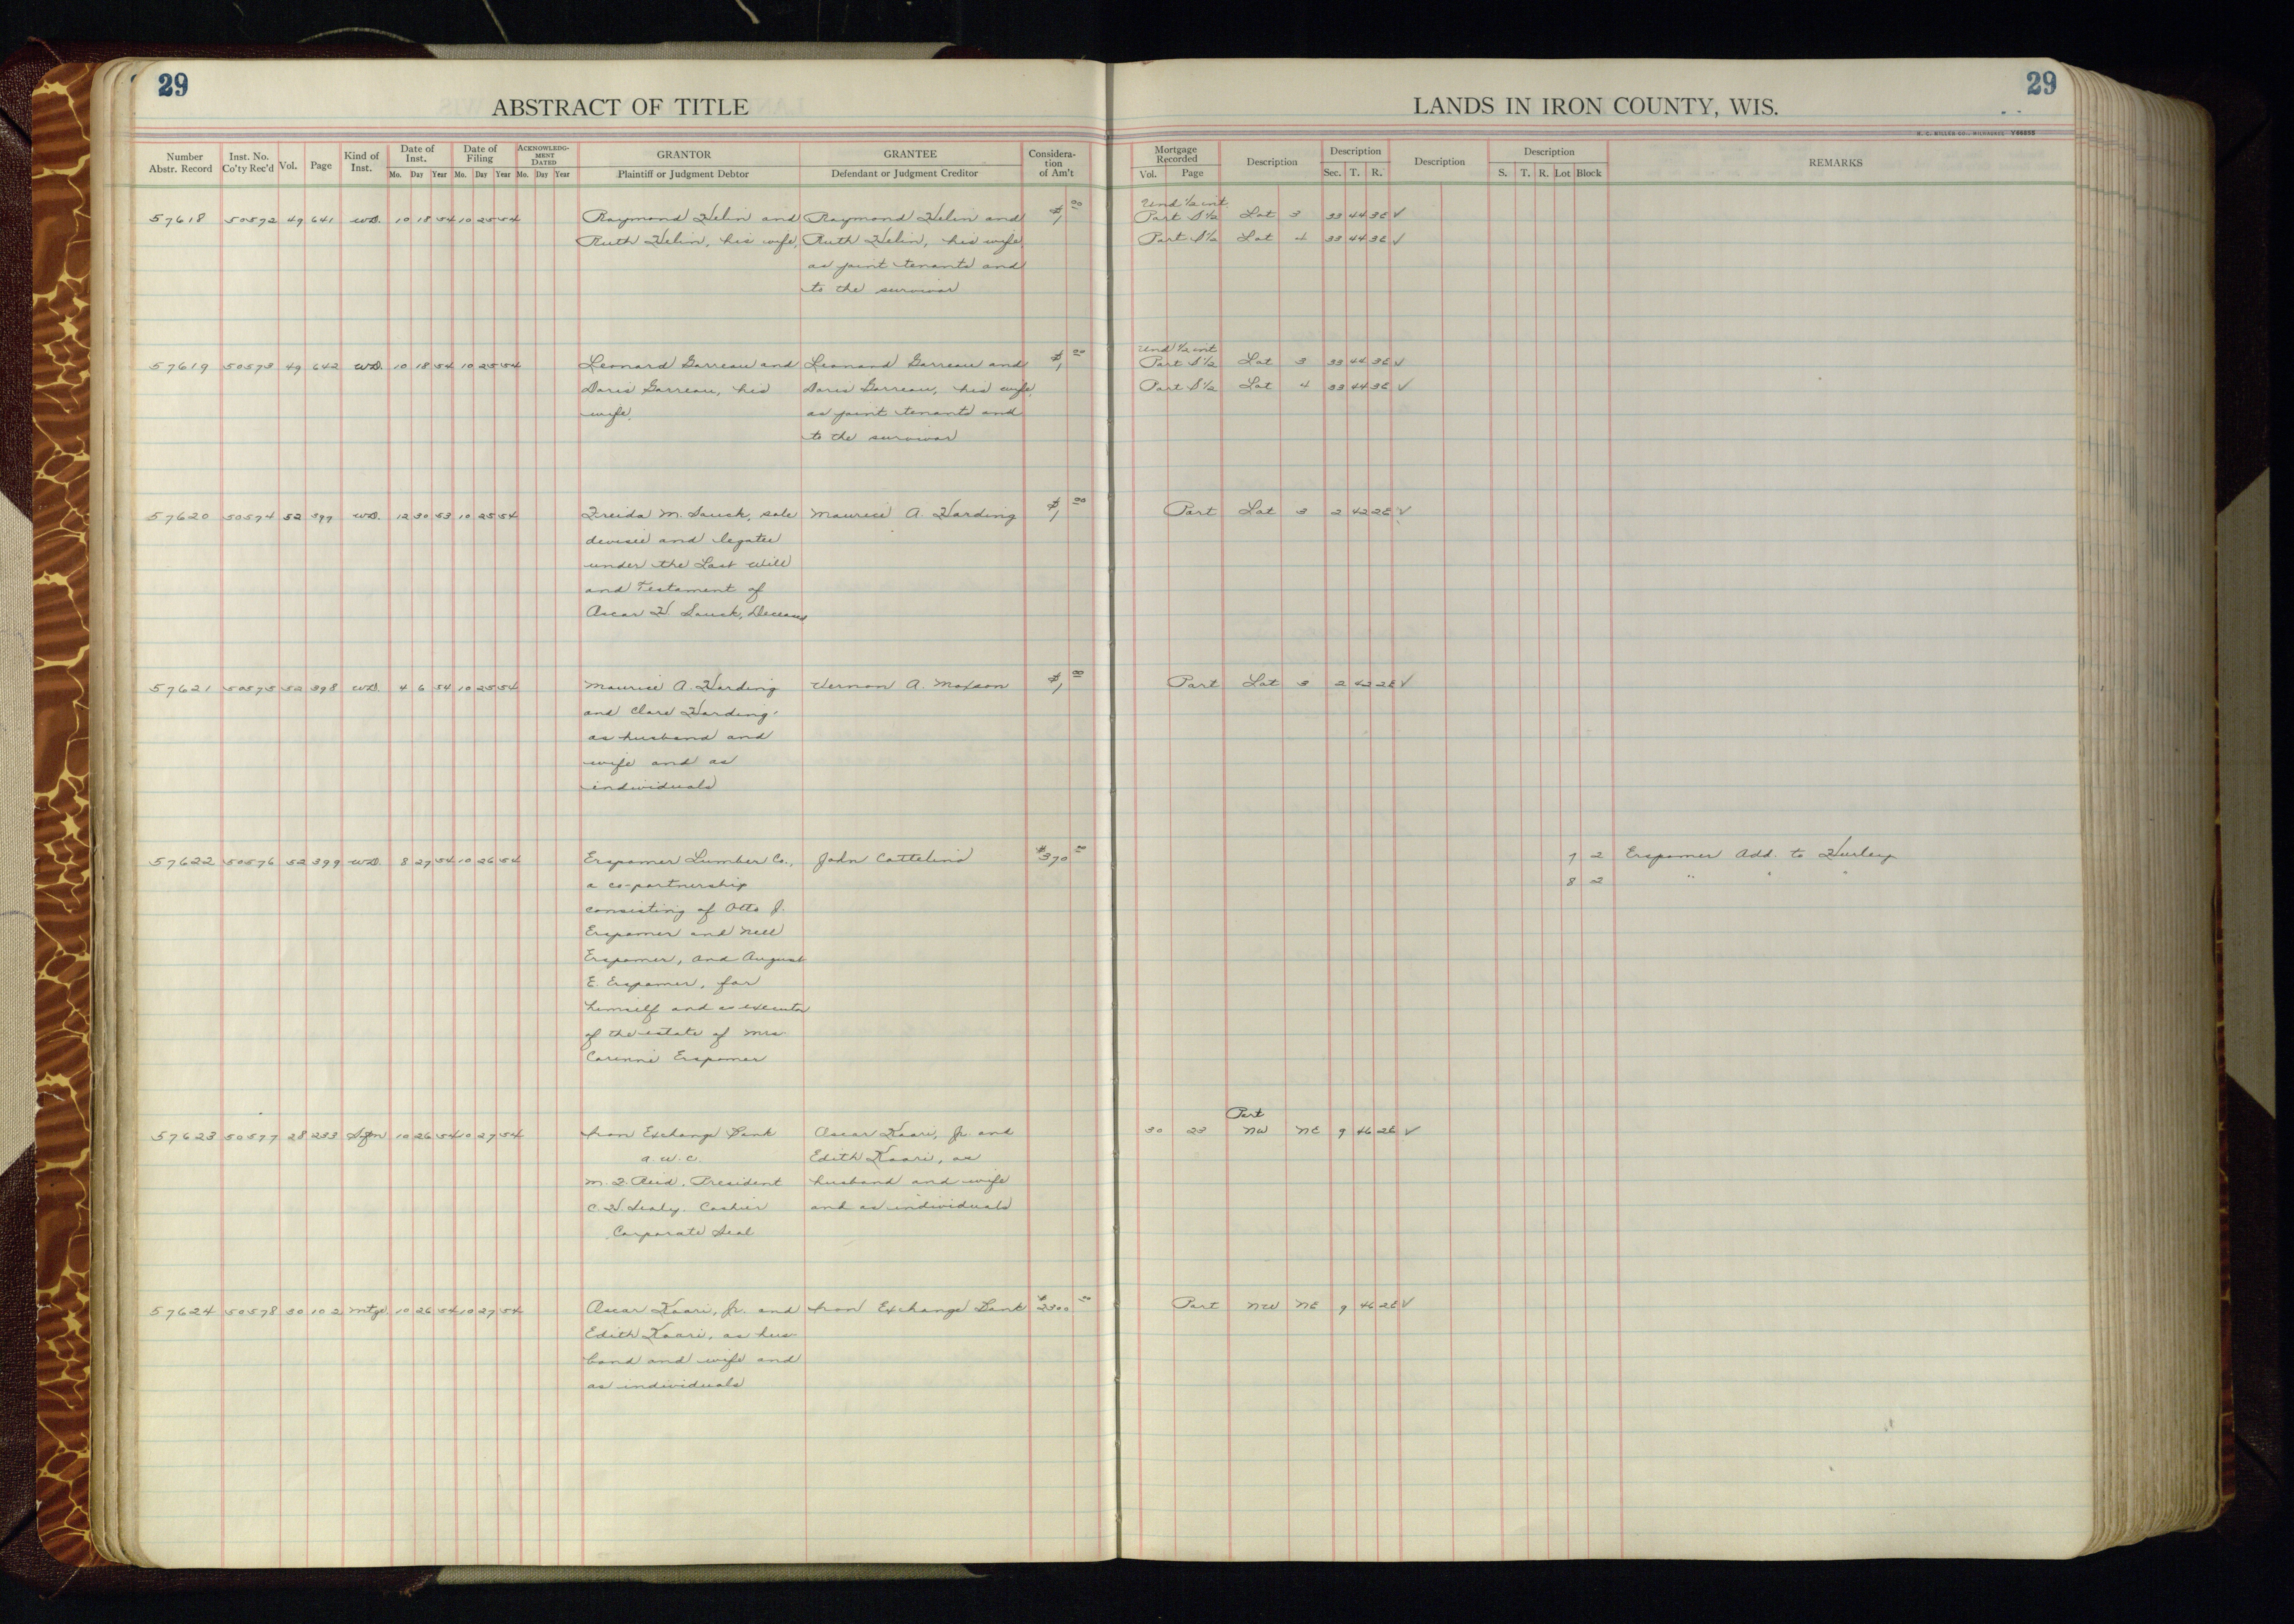 29
ABSTRACT OF TITLE
Number Abstr. Record Inst. No. Co'ty Rec'd Vol. Page Kind of Inst. Date of Inst. Mo. Day Year Date of Filing Mo. Day Year ACKNOWLEDGMENT DATED Mo. Day Year GRANTOR Plaintiff or Judgment Debtor GRANTEE Defendant or Judgment Creditor Consideration of Am't
29
LANDS IN IRON COUNTY, WIS.
H. C. MILLER CO., MILWAUKEE Y66855
Mortgage Recorded Vol. Page Description Description Sec. T. R. Description Description S. T. R. Lot Block REMARKS
Und 1/2 int.
57618 50572 49 641 WD. 10 18 54 10 25 54 Raymond Helin and Raymond Helin and $1 00 Part S1/2 Lot 3 33 44 3E ✓
Ruth Helin, his wife, Ruth Helin, his wife, Part S1/2 Lot 4 33 44 3E ✓
as joint tenants and
to the survivor
Und 1/2 int
57619 50573 49 642 WD. 10 18 54 10 25 54 Leonard Garreau and Leonard Garreau and $1 00 Part S1/2 Lot 3 33 44 3E ✓
Doris Garreau, his Doris Garreau, his wife, Part S1/2 Lot 4 33 44 3E ✓
wife, as joint tenants and
to the survivor
57620 50574 52 397 WD. 12 30 53 10 25 54 Freida M. Sauck, sole Maurice A. Harding $1 00 Part Lot 3 2 42 2E ✓
devisee and legatee
under the Last Will
and Testament of
Oscar H. Sauck, Deceased
57621 50575 52 398 WD. 4 6 54 10 25 54 Maurice A. Harding Vernon A. Moxson $1 00 Part Lot 3 2 42 2E ✓
and Clare Harding,
as husband and
wife and as
individuals
57622 50576 52 399 WD. 8 27 54 10 26 54 Erspamer Lumber Co., John Cattelino $370 00 7 2 Erspamer Add. to Hurley
a co-partnership 8 2 " " "
consisting of Otto J.
Erspamer and Nell
Erspamer, and August
E. Erspamer, for
himself and as executor
of the estate of Mrs.
Corinne Erspamer
Part
57623 50577 28 233 Sfn 10 26 54 10 27 54 Iron Exchange Bank Oscar Kaari, Jr. and 30 23 NW NE 9 46 2E ✓
a.w.c. Edith Kaari, as
M.F. Reid, President husband and wife
C.H. Sealy, Cashier and as individuals
Corporate Seal
57624 50578 30 102 Mtge. 10 26 54 10 27 54 Oscar Kaari, Jr. and Iron Exchange Bank $2300 00 Part NW NE 9 46 2E ✓
Edith Kaari, as hus-
band and wife and
as individuals